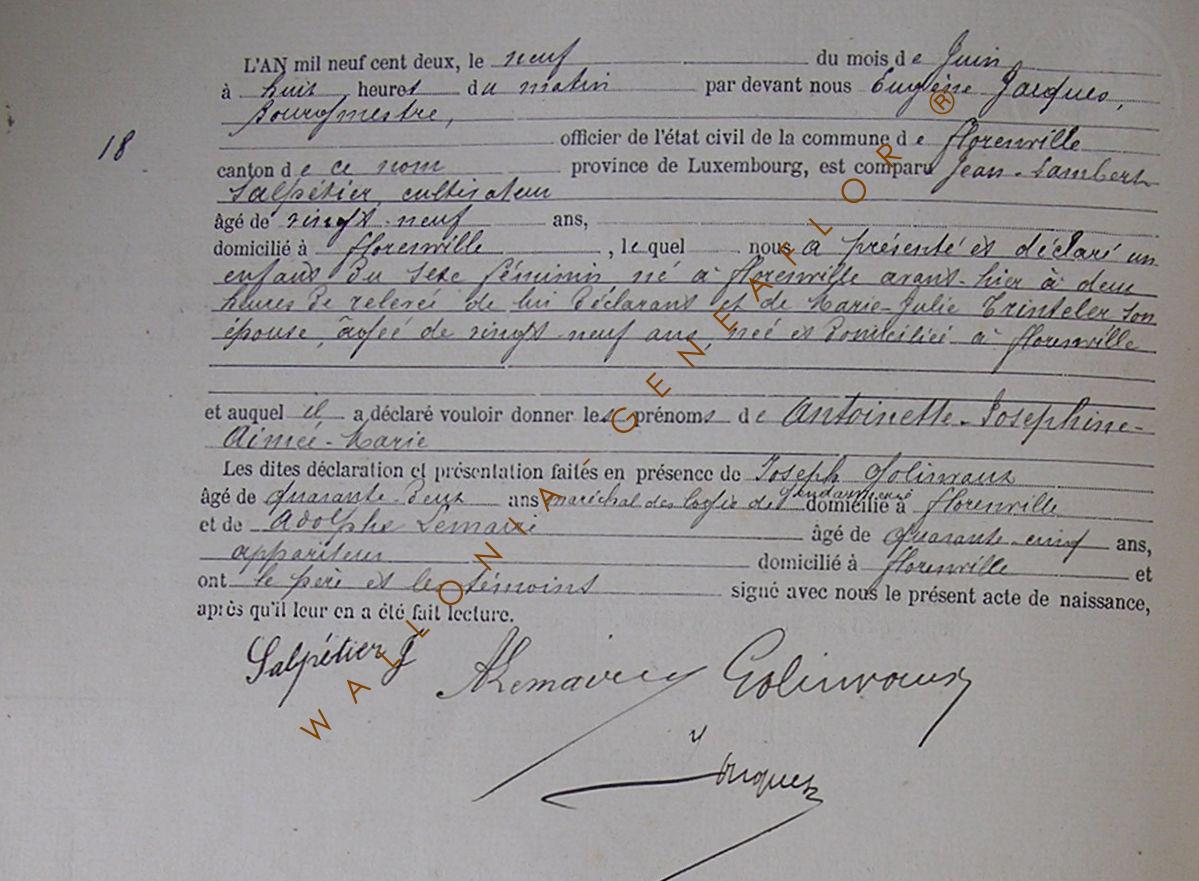 L'AN mil neuf cent deux, le neuf du mois de Juin
à huit heures du matin par devant nous Eugène Jacques,
Bourgmestre,
officier de l'état civil de la commune de Florenville
18
canton de ce nom province de Luxembourg, est comparu Jean-Lambert
Salpétier, cultivateur
âgé de vingt-neuf ans,
domicilié à Florenville, lequel nous a présenté et déclaré un
enfant du sexe féminin né à Florenville avant-hier à deux
heures de relevée de lui déclarant et de Marie-Julie Trinteler son
épouse, âgée de vingt-neuf ans, née et domiciliée à Florenville
et auquel il a déclaré vouloir donner les prénoms de Antoinette-Josephine-
Aimée-Marie
Les dites déclaration et présentation faites en présence de Joseph Golinvaux
âgé de quarante-deux ans maréchal des logis de Gendarmerie domicilié à Florenville
et de Adolphe Lemaire âgé de quarante-cinq ans,
appariteur domicilié à Florenville et
ont le père et les témoins signé avec nous le présent acte de naissance,
après qu'il leur en a été fait lecture.
Salpétier J
ALemaire Golinvaux
Jacques
WALLONIA GENEAFLOR ®